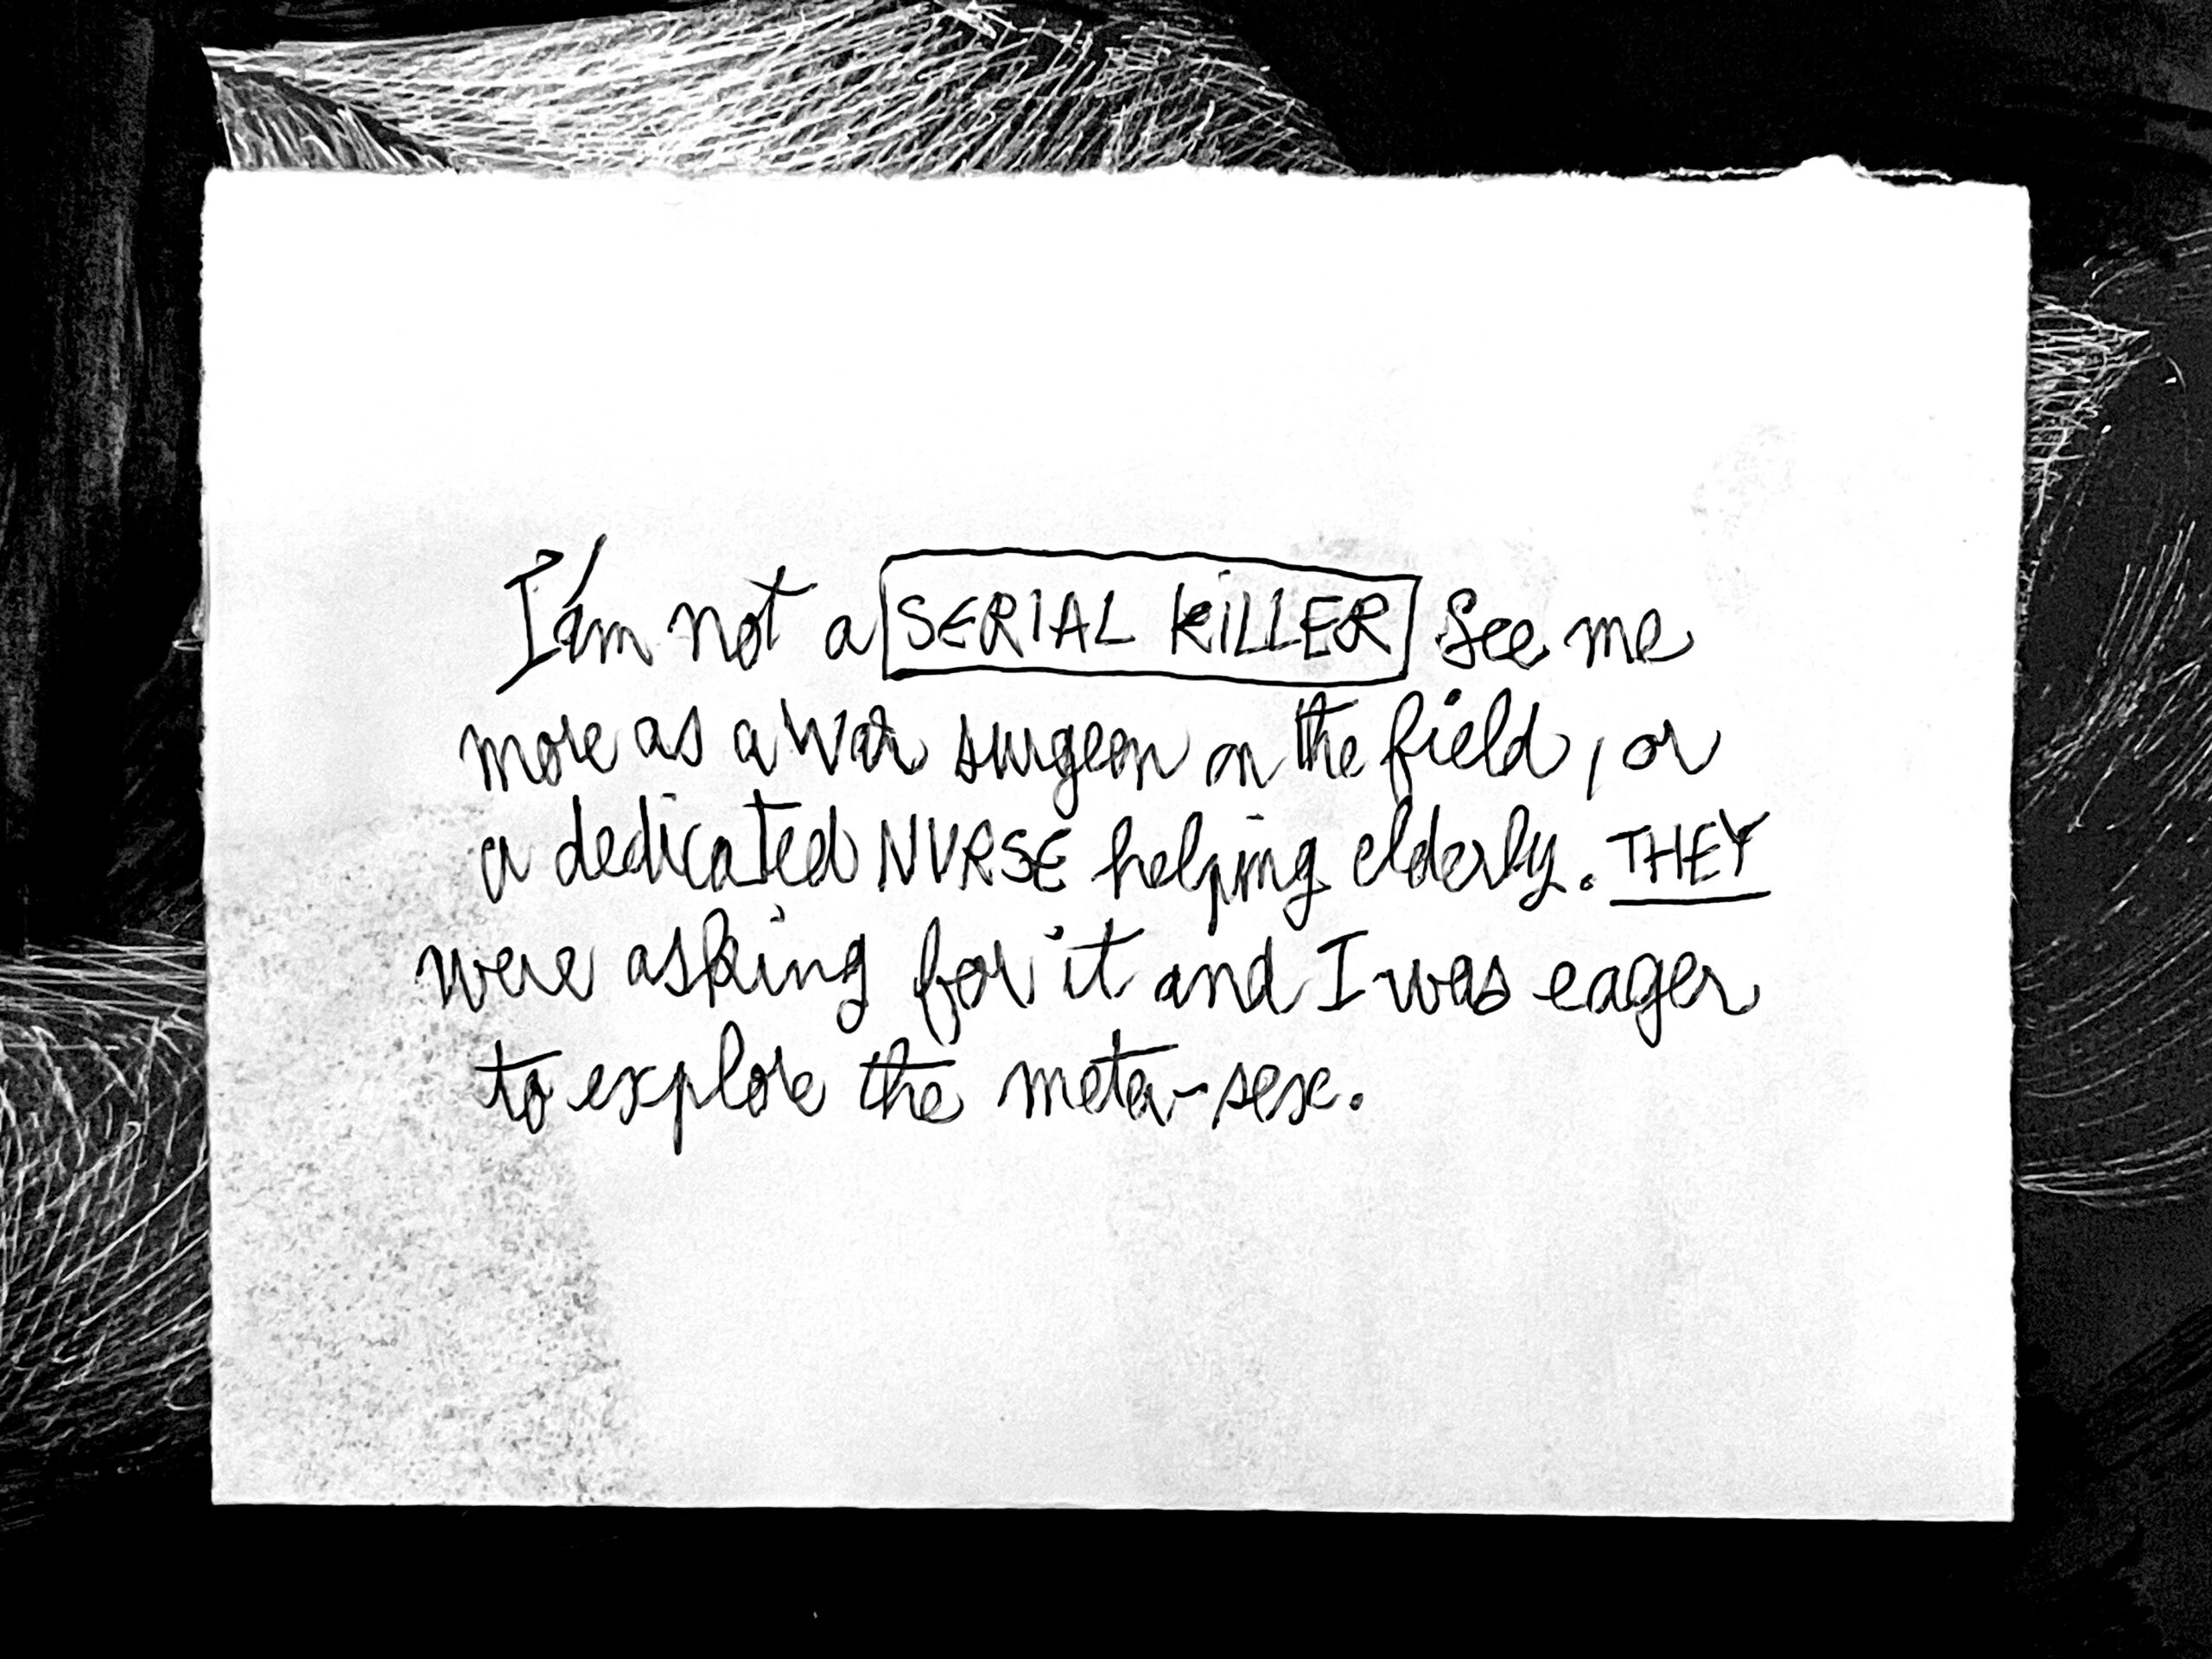 I'am not a SERIAL KiLLER See me
more as a War surgeon on the field, or
a dedicated NURSE helping elderly. THEY
were asking for it and I was eager
to explore the meta-sex.